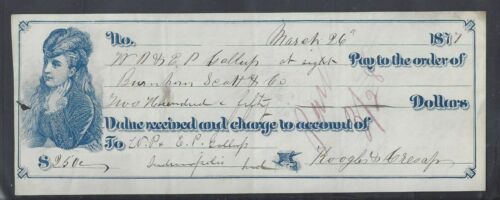 No. March 26" 1877
W. P. & E. P. Gallup at sight Pay to the order of
Burnham Scott & Co
Two Hundred & fifty Dollars
Value received and charge to account of
To W. P. & E. P. Gallup
$250 Indianapolis Ind Koogle & Cresap
3/28